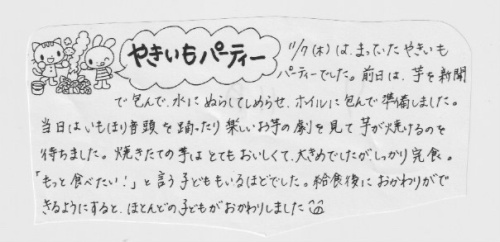 やきいもパーティー
11/7(木)は、まっていたやきいも
パーティーでした。前日は、芋を新聞
で包んで、水にぬらしてしめらせ、ホイルに包んで準備しました。
当日はいもほり音頭を踊ったり楽しいお芋の劇を見て芋が焼けるのを
待ちました。焼きたての芋はとてもおいしくて、大きめでしたがしっかり完食。
「もっと食べたい!」と言う子どももいるほどでした。給食後におかわりがで
きるようにすると、ほとんどの子どもがおかわりしました